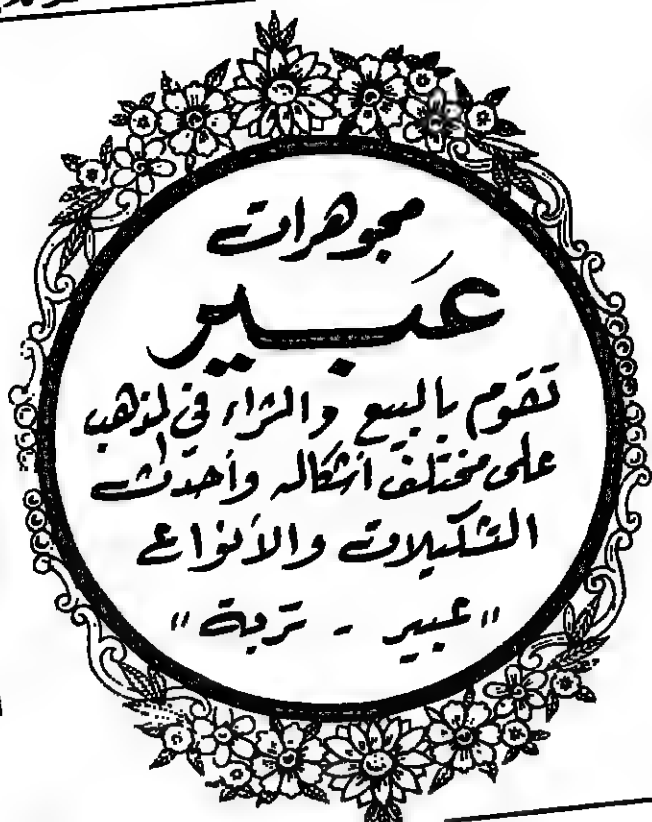 مجوهرات
عَبــير
تقوم بالبيع والشراء في الذهب
على مختلف أشكاله وأحدث
التشكيلات والأنواع
"عبير - تربة"